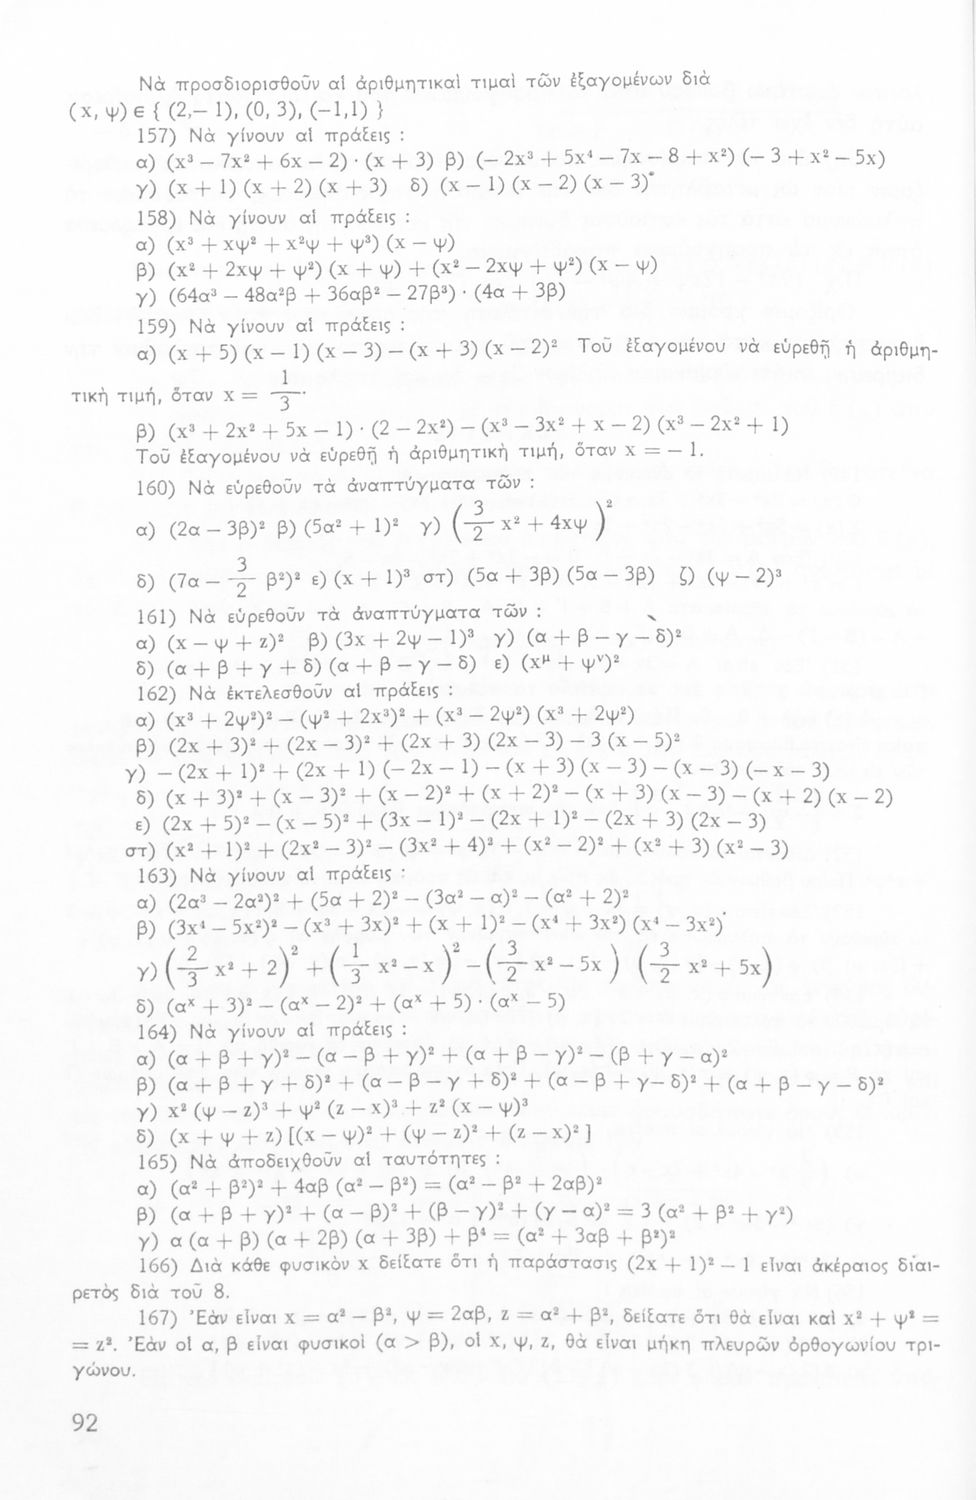 Νὰ προσδιορισθοῦν αἱ ἀριθμητικαὶ τιμαὶ τῶν ἐξαγομένων διὰ
(x, ψ) ∈ { (2,– 1), (0, 3), (–1,1) }
157) Νὰ γίνουν αἱ πράξεις :
α) (x³ – 7x² + 6x – 2) · (x + 3) β) (– 2x³ + 5x⁴ – 7x – 8 + x²) (– 3 + x² – 5x)
γ) (x + 1) (x + 2) (x + 3) δ) (x – 1) (x – 2) (x – 3)
158) Νὰ γίνουν αἱ πράξεις :
α) (x³ + xψ² + x²ψ + ψ³) (x – ψ)
β) (x² + 2xψ + ψ²) (x + ψ) + (x² – 2xψ + ψ²) (x – ψ)
γ) (64α³ – 48α²β + 36αβ² – 27β³) · (4α + 3β)
159) Νὰ γίνουν αἱ πράξεις :
α) (x + 5) (x – 1) (x – 3) – (x + 3) (x – 2)² Τοῦ ἐξαγομένου νὰ εὑρεθῇ ἡ ἀριθμη-
τικὴ τιμή, ὅταν x = 1/3.
β) (x³ + 2x² + 5x – 1) · (2 – 2x²) – (x³ – 3x² + x – 2) (x³ – 2x² + 1)
Τοῦ ἐξαγομένου νὰ εὑρεθῇ ἡ ἀριθμητικὴ τιμή, ὅταν x = – 1.
160) Νὰ εὑρεθοῦν τὰ ἀναπτύγματα τῶν :
α) (2α – 3β)² β) (5α² + 1)² γ) (3/2 x² + 4xψ)²
δ) (7α – 3/2 β²)² ε) (x + 1)³ στ) (5α + 3β) (5α – 3β) ζ) (ψ – 2)³
161) Νὰ εὑρεθοῦν τὰ ἀναπτύγματα τῶν :
α) (x – ψ + z)² β) (3x + 2ψ – 1)³ γ) (α + β – γ – δ)²
δ) (α + β + γ + δ) (α + β – γ – δ) ε) (xᵘ + ψᵛ)²
162) Νὰ ἐκτελεσθοῦν αἱ πράξεις :
α) (x³ + 2ψ²)² – (ψ² + 2x³)² + (x³ – 2ψ²) (x³ + 2ψ²)
β) (2x + 3)² + (2x – 3)² + (2x + 3) (2x – 3) – 3 (x – 5)²
γ) – (2x + 1)² + (2x + 1) (– 2x – 1) – (x + 3) (x – 3) – (x – 3) (– x – 3)
δ) (x + 3)² + (x – 3)² + (x – 2)² + (x + 2)² – (x + 3) (x – 3) – (x + 2) (x – 2)
ε) (2x + 5)² – (x – 5)² + (3x – 1)² – (2x + 1)² – (2x + 3) (2x – 3)
στ) (x² + 1)² + (2x² – 3)² – (3x² + 4)² + (x² – 2)² + (x² + 3) (x² – 3)
163) Νὰ γίνουν αἱ πράξεις :
α) (2α³ – 2α²)² + (5α + 2)² – (3α² – α)² – (α² + 2)²
β) (3x⁴ – 5x²)² – (x³ + 3x)² + (x + 1)² – (x⁴ + 3x²) (x⁴ – 3x²)
γ) (2/3 x² + 2)² + (1/3 x² – x)² – (3/2 x² – 5x) (3/2 x² + 5x)
δ) (αˣ + 3)² – (αˣ – 2)² + (αˣ + 5) · (αˣ – 5)
164) Νὰ γίνουν αἱ πράξεις :
α) (α + β + γ)² – (α – β + γ)² + (α + β – γ)² – (β + γ – α)²
β) (α + β + γ + δ)² + (α – β – γ + δ)² + (α – β + γ– δ)² + (α + β – γ – δ)²
γ) x² (ψ – z)³ + ψ² (z – x)³ + z² (x – ψ)³
δ) (x + ψ + z) [(x – ψ)² + (ψ – z)² + (z – x)² ]
165) Νὰ ἀποδειχθοῦν αἱ ταυτότητες :
α) (α² + β²)² + 4αβ (α² – β²) = (α² – β² + 2αβ)²
β) (α + β + γ)² + (α – β)² + (β – γ)² + (γ – α)² = 3 (α² + β² + γ²)
γ) α (α + β) (α + 2β) (α + 3β) + β⁴ = (α² + 3αβ + β²)²
166) Διὰ κάθε φυσικὸν x δείξατε ὅτι ἡ παράστασις (2x + 1)² – 1 εἶναι ἀκέραιος διαι-
ρετὸς διὰ τοῦ 8.
167) Ἐὰν εἶναι x = α² – β², ψ = 2αβ, z = α² + β², δείξατε ὅτι θὰ εἶναι καὶ x² + ψ² =
= z². Ἐὰν οἱ α, β εἶναι φυσικοὶ (α > β), οἱ x, ψ, z, θὰ εἶναι μήκη πλευρῶν ὀρθογωνίου τρι-
γώνου.
92